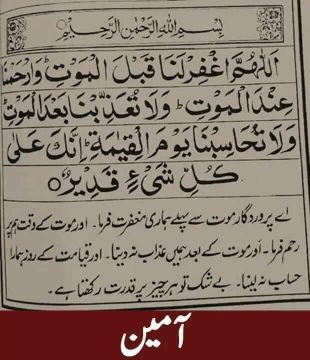 بِسْمِ اللهِ الرَّحْمٰنِ الرَّحِيْمِ
اَللّٰهُمَّ اغْفِرْ لَنَا قَبْلَ الْمَوْتِ ؕ وَارْحَمْنَا
عِنْدَ الْمَوْتِ ؕ وَلَا تُعَذِّبْنَا بَعْدَ الْمَوْتِ ؕ
وَلَا تُحَاسِبْنَا يَوْمَ الْقِيٰمَةِ ؕ اِنَّكَ عَلٰى
كُلِّ شَىْءٍ قَدِيْرٌ ○
اے پروردگار موت سے پہلے ہماری مغفرت فرما۔ اور موت کے وقت ہم پر
رحم فرما۔ اور موت کے بعد ہمیں عذاب نہ دینا۔ اور قیامت کے روز ہمارا
حساب نہ لینا۔ بے شک تو ہر چیز پر قدرت رکھتا ہے۔
آمین